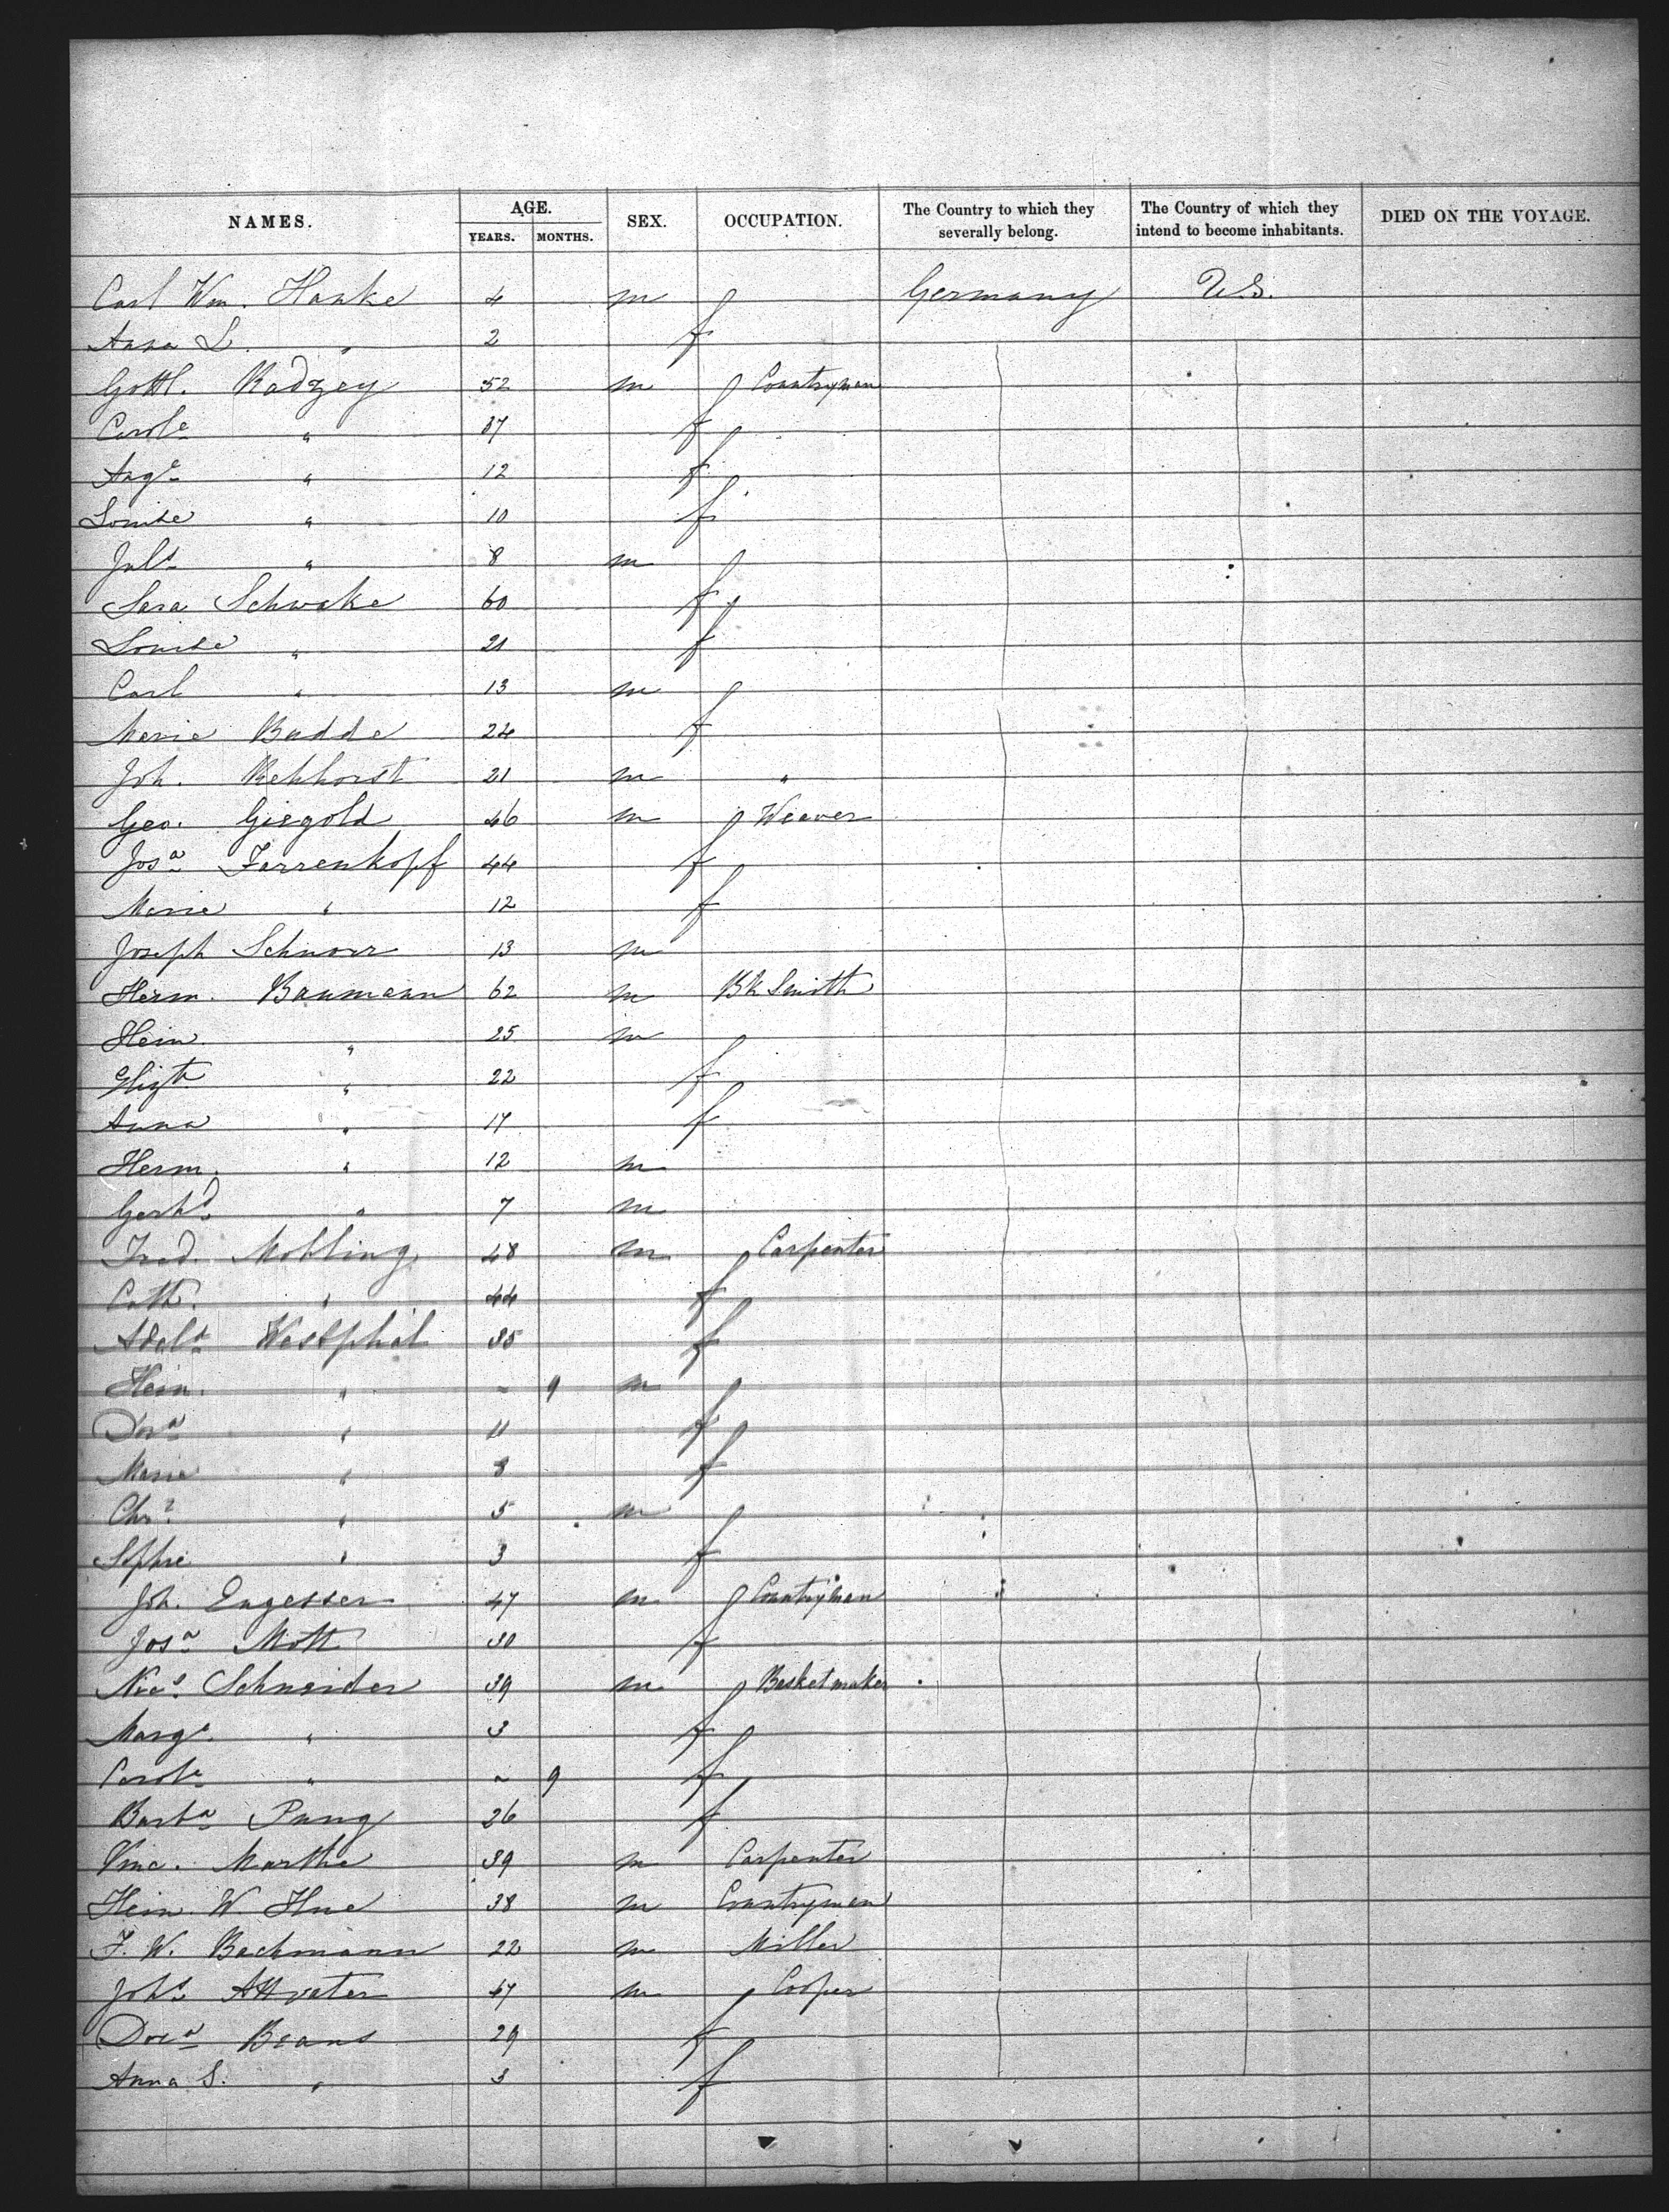 NAMES. AGE. SEX. OCCUPATION. The Country to which they severally belong. The Country of which they intend to become inhabitants. DIED ON THE VOYAGE.
YEARS. MONTHS.
Carl Wm. Hanke 4 m Germany U.S.
Anna L. " 2 f
Gottl. Radzey 52 m Countryman
Carole " 37 f
Auge " 12 f
Louise " 10 f
Juls " 8 m
Sara Schwake 60 f
Louise " 21 f
Carl " 13 m
Marie Budde 24 f
Joh. Rehhorst 21 m "
Geo. Giegold 46 m Weaver
Josa Farrenkopf 44 f
Marie " 12 f
Joseph Schnorr 13 m
Herm. Baumann 62 m Bk Smith
Hein. " 25 m
Elizth " 22 f
Anna " 17 f
Herm. " 12 m
Gerhd " 7 m
Fred. Mobling 48 m Carpenter
Cath. " 44 f
Westphal 35 f
Hein. " - 9 m
Dora " 11 f
Marie " 8 f
Chr. " 5 m
Sophie " 3 f
Joh. Engesser 47 m Countryman
Josa Mott 30 f
Nics. Schneider 39 m Basketmaker
Marge " 3 f
Carole " - 9 f
Barba Pung 26 f
Vinc. Marthe 39 m Carpenter
Hein. W. Hue 38 m Countryman
F. W. Bachmann 22 m Miller
Johs Attvater 47 m Cooper
Dora Brans 29 f
Anna S. " 3 f